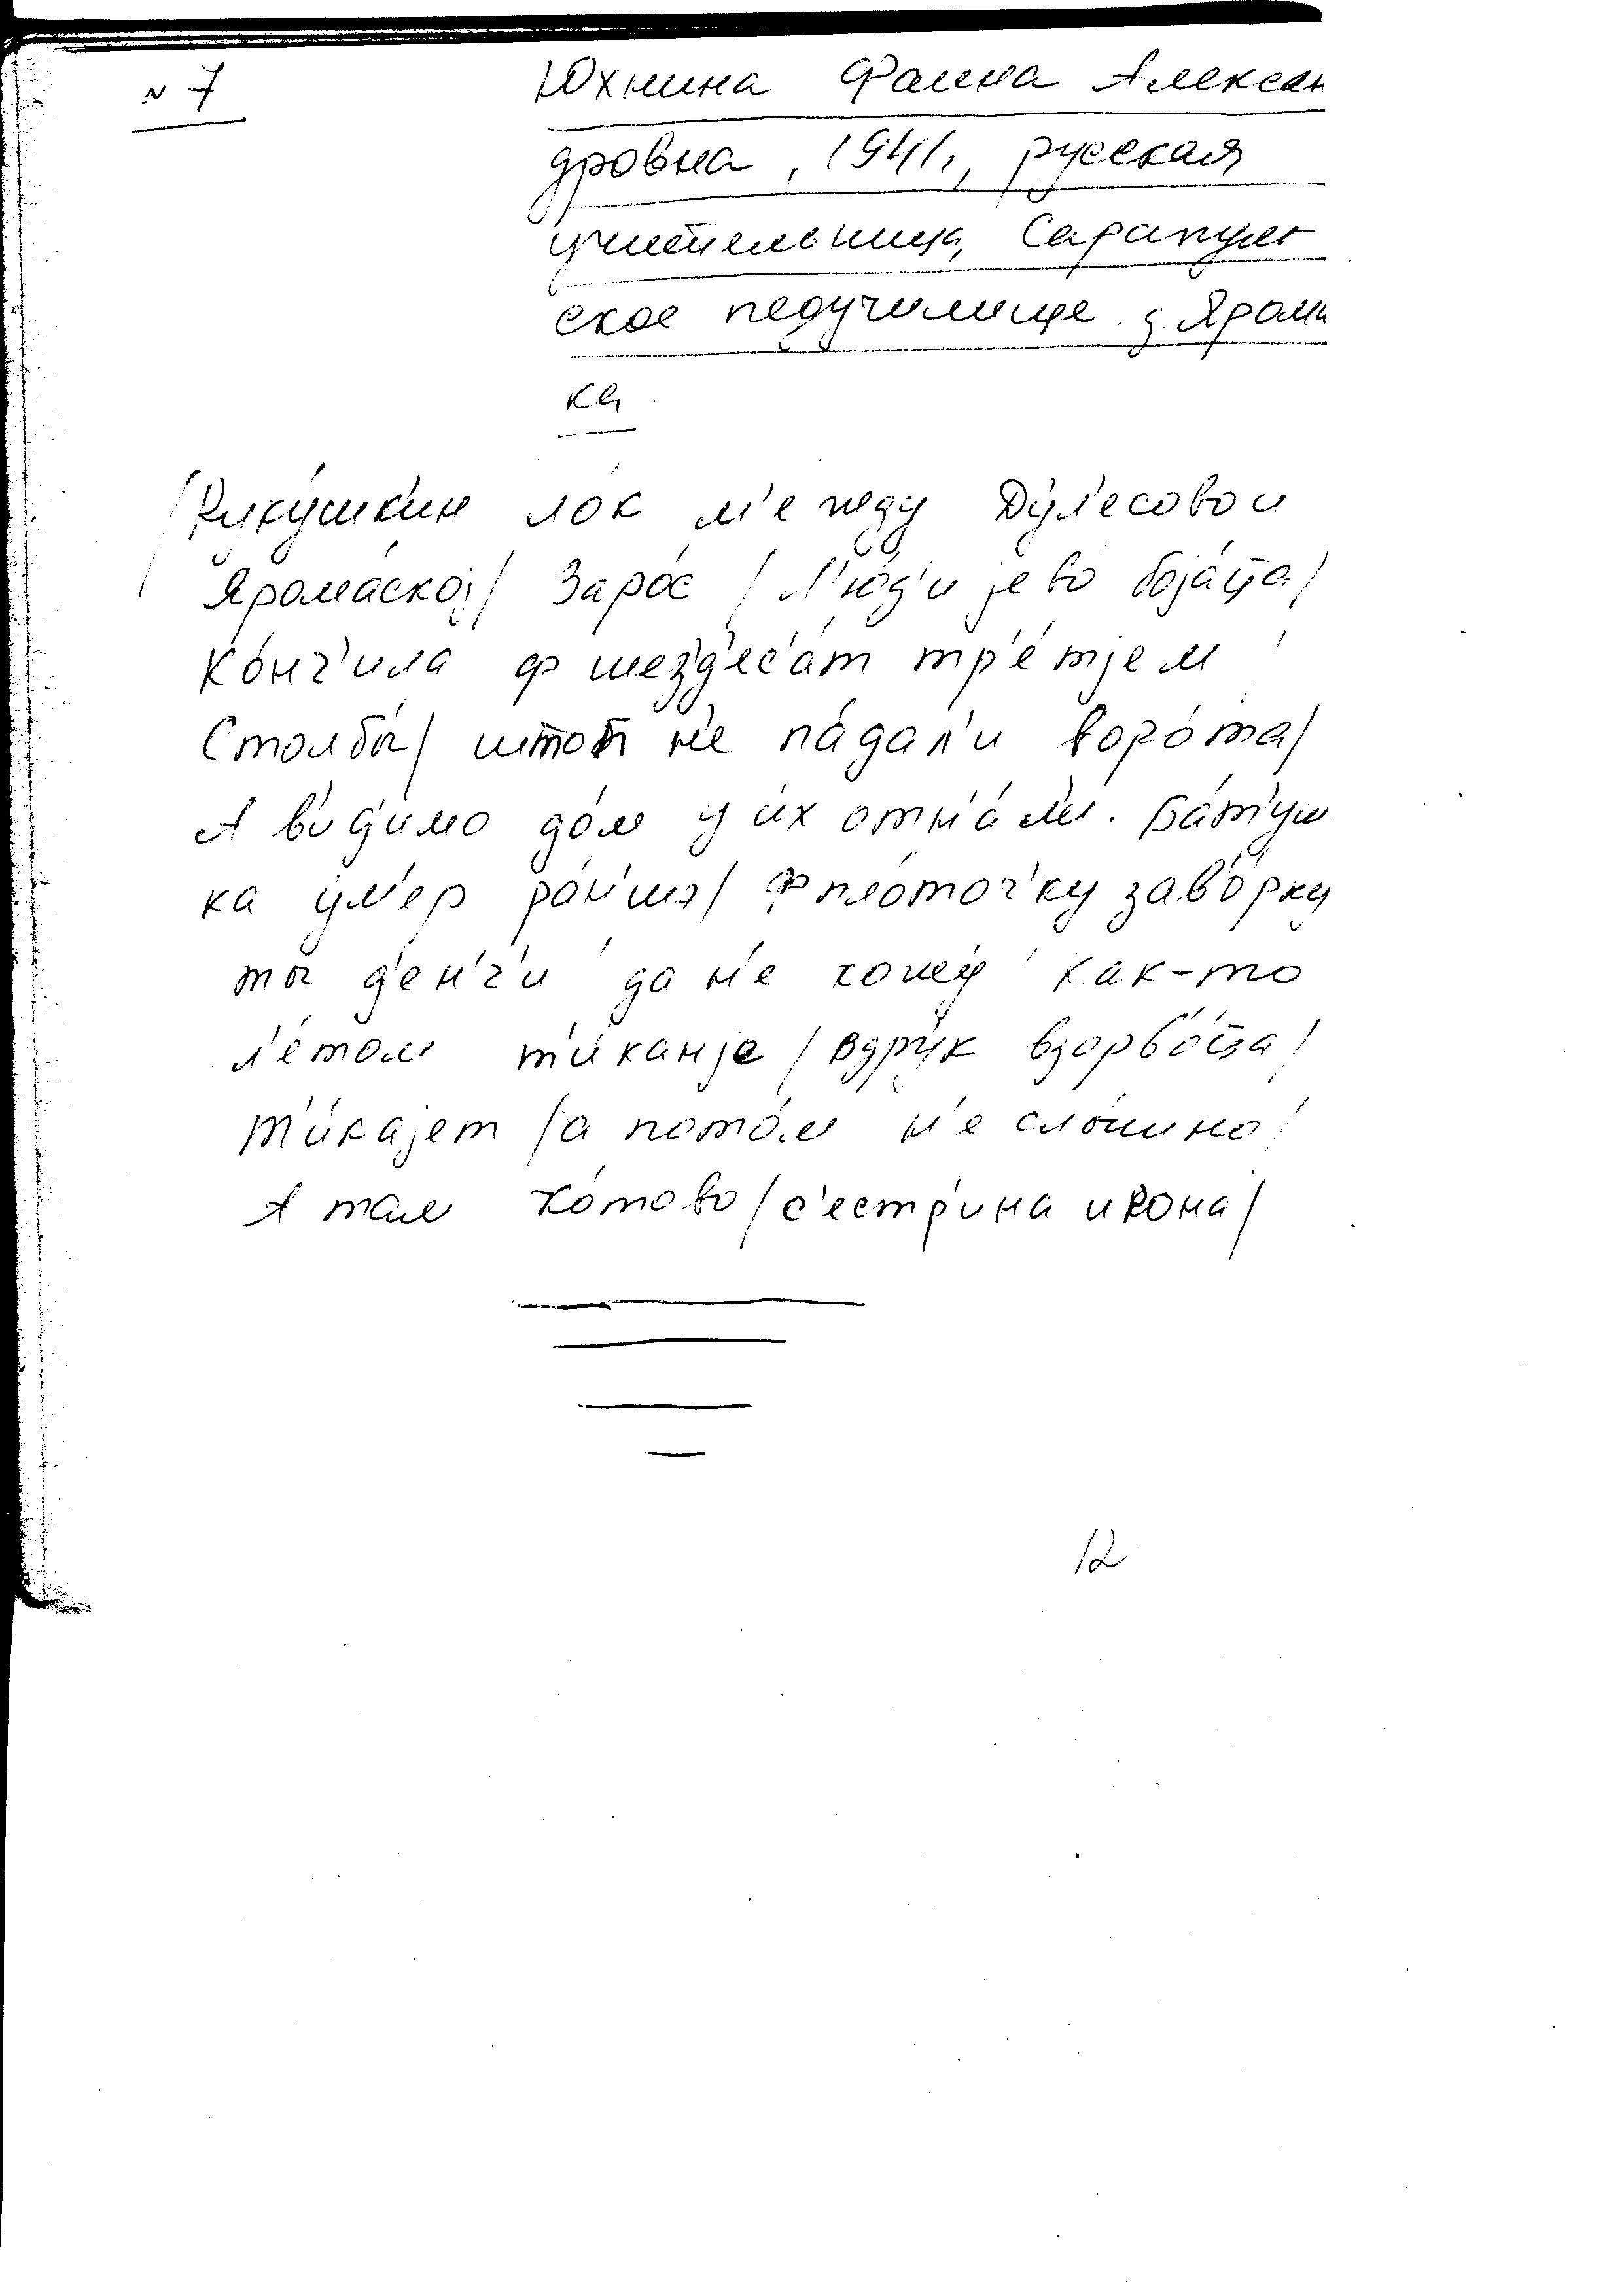 N 7
Юхнина Фаина Алексан
дровна, 1941, русская
учительница, Сарапуль
ское педучилище д. Ярома
ка
/Кукушкин лок м'ежду Дул'есовой
Яромаској/ Зарос / Л'юд'и јево бојаца/
Конч'ила ф шез'д'ес'ат тр'етјем /
Столбы/ штоп н'е падал'и ворота/
А в'ид'имо дом у их отн'ал'и. Бат'уш
ка ум'ер ран'шэ/ Ф плоточ'ку зав'орну
ты д'ен'г'и да н'е хошу / Как-то
л'етом т'иканје / вдрук взорв'оца/
Т'икајет / а потом н'е слышно /
А там котово/ с'естр'ина икона/
12